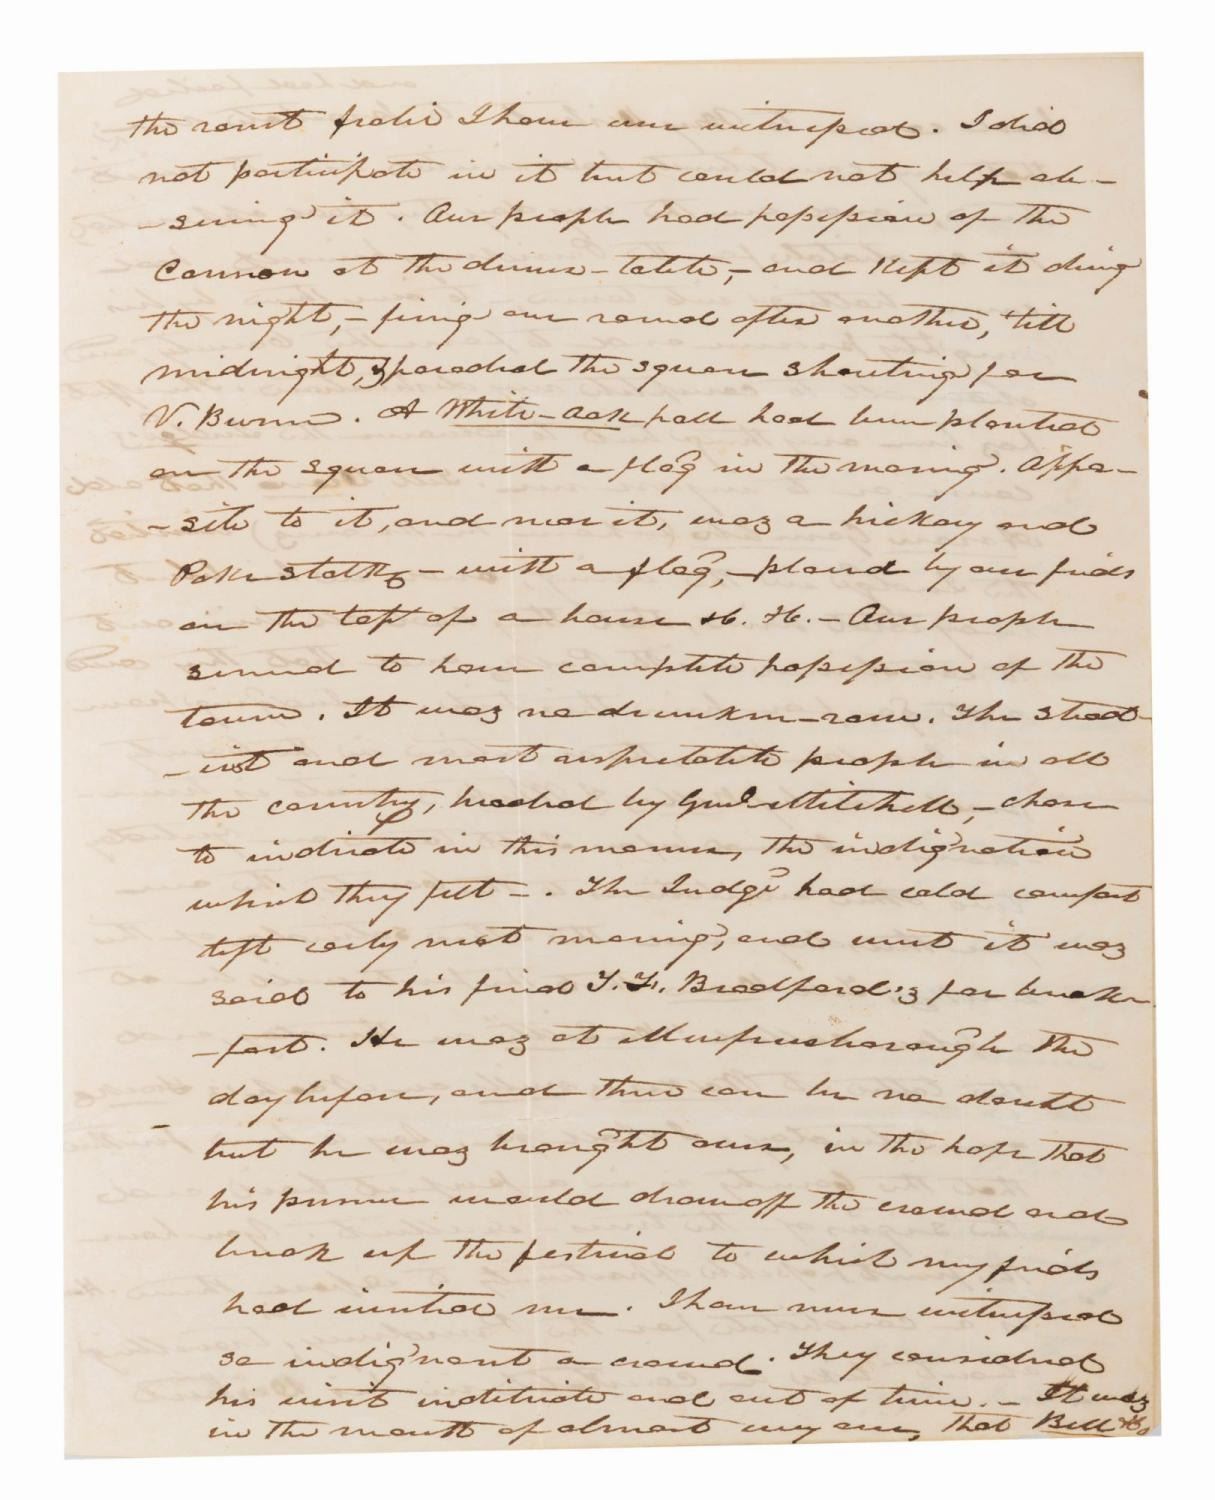 the roust frolic I have ever witnessed. I did
not participate in it but could not help ob-
-serving it. Our people had possession of the
Cannon at the dinner-table,- and kept it during
the night,- firing one round after another, 'till
midnight, & paraded the square shouting for
V. Buren. A White-oak pole had been planted
on the square with a flag in the morning. Oppo-
-site to it, and near it, was a hickory and
Poke stalk - with a flag, - placed by our friends
on the top of a house H. H. - Our people
seemed to have complete possession of the
town. It was no drunken-row. The stead-
-iest and most respectable people in all
the country, headed by Genl Mitchell, - chose
to indicate in this manner, the indignation
which they felt -. The Judge had cold comfort
left early next morning, and went it was
said to his friend T. F. Bradford's for break-
-fast. He was at Murfreesborough the
day before, and there can be no doubt
but he was brought over, in the hope that
his presence would draw off the crowd and
break up the festival to which my friends
had invited me. I have never witnessed
so indignant a crowd. They considered
his visit indelicate and out of time. - It was
in the mouth of almost every one, that Bell &